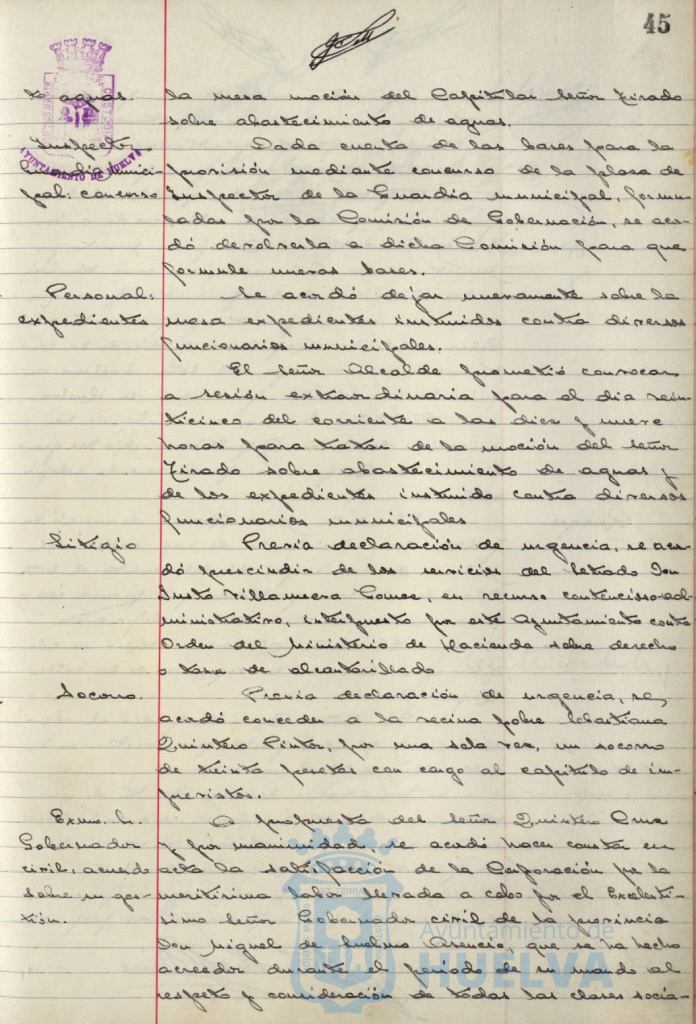 45
to aguas.
la mesa moción del Capitular señor Tirado
sobre abastecimiento de aguas.
Inspector
Guardia munici-
pal: concurso
Dada cuenta de las bases para la
provisión mediante concurso de la plaza de
Inspector de la Guardia municipal, formu-
ladas por la Comisión de Gobernación, se acor-
dó devolverla a dicha Comisión para que
formule nuevas bases.
Personal:
expedientes
Se acordó dejar nuevamente sobre la
mesa expedientes instruidos contra diversos
funcionarios municipales.
El señor Alcalde prometió convocar
a sesión extraordinaria para el dia vein-
ticinco del corriente a las diez y nueve
horas para tratar de la moción del señor
Tirado sobre abastecimiento de aguas y
de los expedientes instruido contra diversos
funcionarios municipales
Litigio
Previa declaración de urgencia, se acor-
dó prescindir de los servicios del letrado Don
Justo Villanueva Gomez, en recurso contencioso-ad-
ministrativo, interpuesto por este Ayuntamiento contra
Orden del Ministerio de Hacienda sobre derecho
o tasa de alcantarillado
Socorro.
Previa declaración de urgencia, se
acordó conceder a la vecina pobre Sebastiana
Quintero Pintor, por una sola vez, un socorro
de treinta pesetas con cargo al capitulo de im-
previstos.
Exmo. Sr.
Gobernador
civil, acuerdo
sobre su ges-
tión.
A propuesta del señor Quintero
y por unanimidad, se acordó hacer constar en
acta la satisfacción de la Corporación por la
meritisima labor llevada a cabo por el Excelenti-
simo señor Gobernador civil de la provincia
Don Miguel de Asencio, que se ha hecho
acreedor durante el periodo de su mando al
respeto y consideración de todas las clases socia-
AYUNTAMIENTO DE HUELVA
Ayuntamiento de
HUELVA